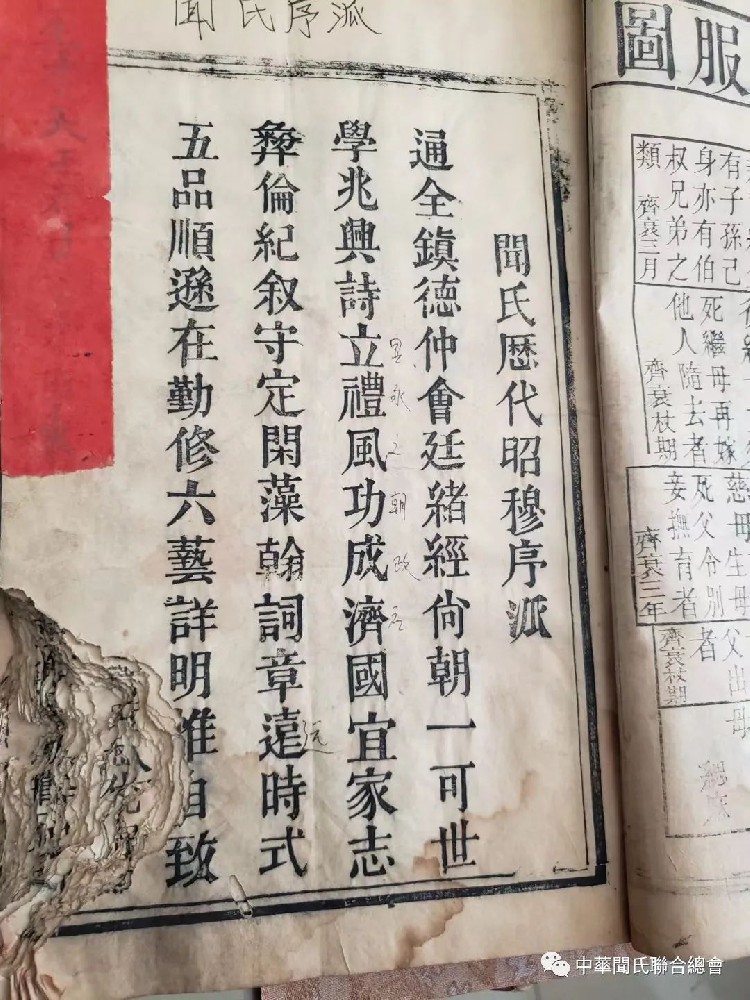 聞氏序派
服圖
聞氏歷代昭穆序派
通全鎮德仲會廷緒經尙朝一可世
學兆興詩立禮風功成濟國宜家志
彞倫紀叙守定閑藻翰詞章遠時式
五品順遜在勤修六藝詳明惟自致
永 之 朝 政
远
有子孫己
身亦有伯
叔兄弟之
類 齊衰三月
死繼母再嫁
他人隨去者
齊衰杖期
慈母生母
死父令別
妾撫育者
齊衰三年
父出母
者
齊衰杖期
中華聞氏聯合總會